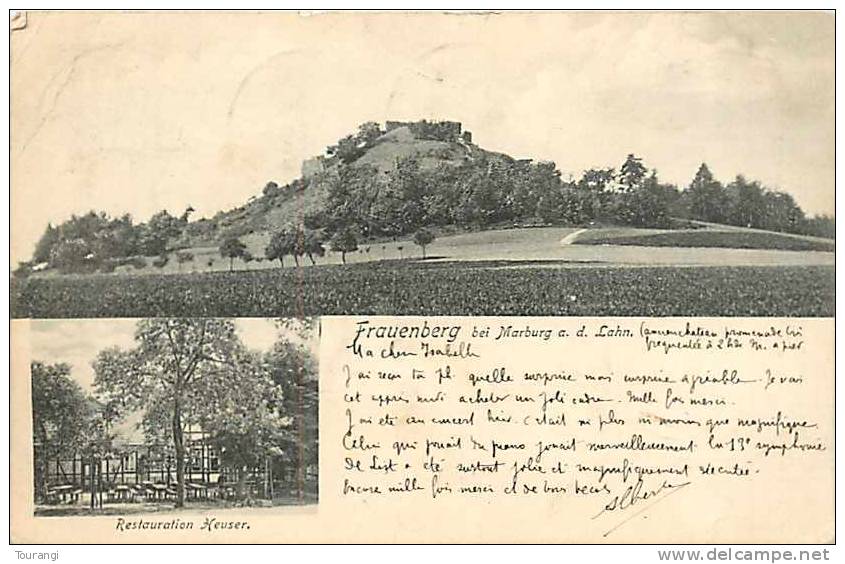 Frauenberg bei Marburg a. d. Lahn. (ancien chateau promenade très
frequentée à 2 hrs M. a pied
Ma chere Isabelle
J'ai reçu ta pl. quelle surprise mais surprise agréable. Je vais
cet après midi acheter un joli cadre. Mille fois merci.
J'ai été au concert hier. C'était ni plus ni moins que magnifique.
Celui qui jouait du piano jouait merveilleusement la 13e symphonie
de List a été surtout jolie et magnifiquement exécutée.
Encore mille fois merci et de bons becots
Alberte
Restauration Heuser.
Tourangi
www.delcampe.net